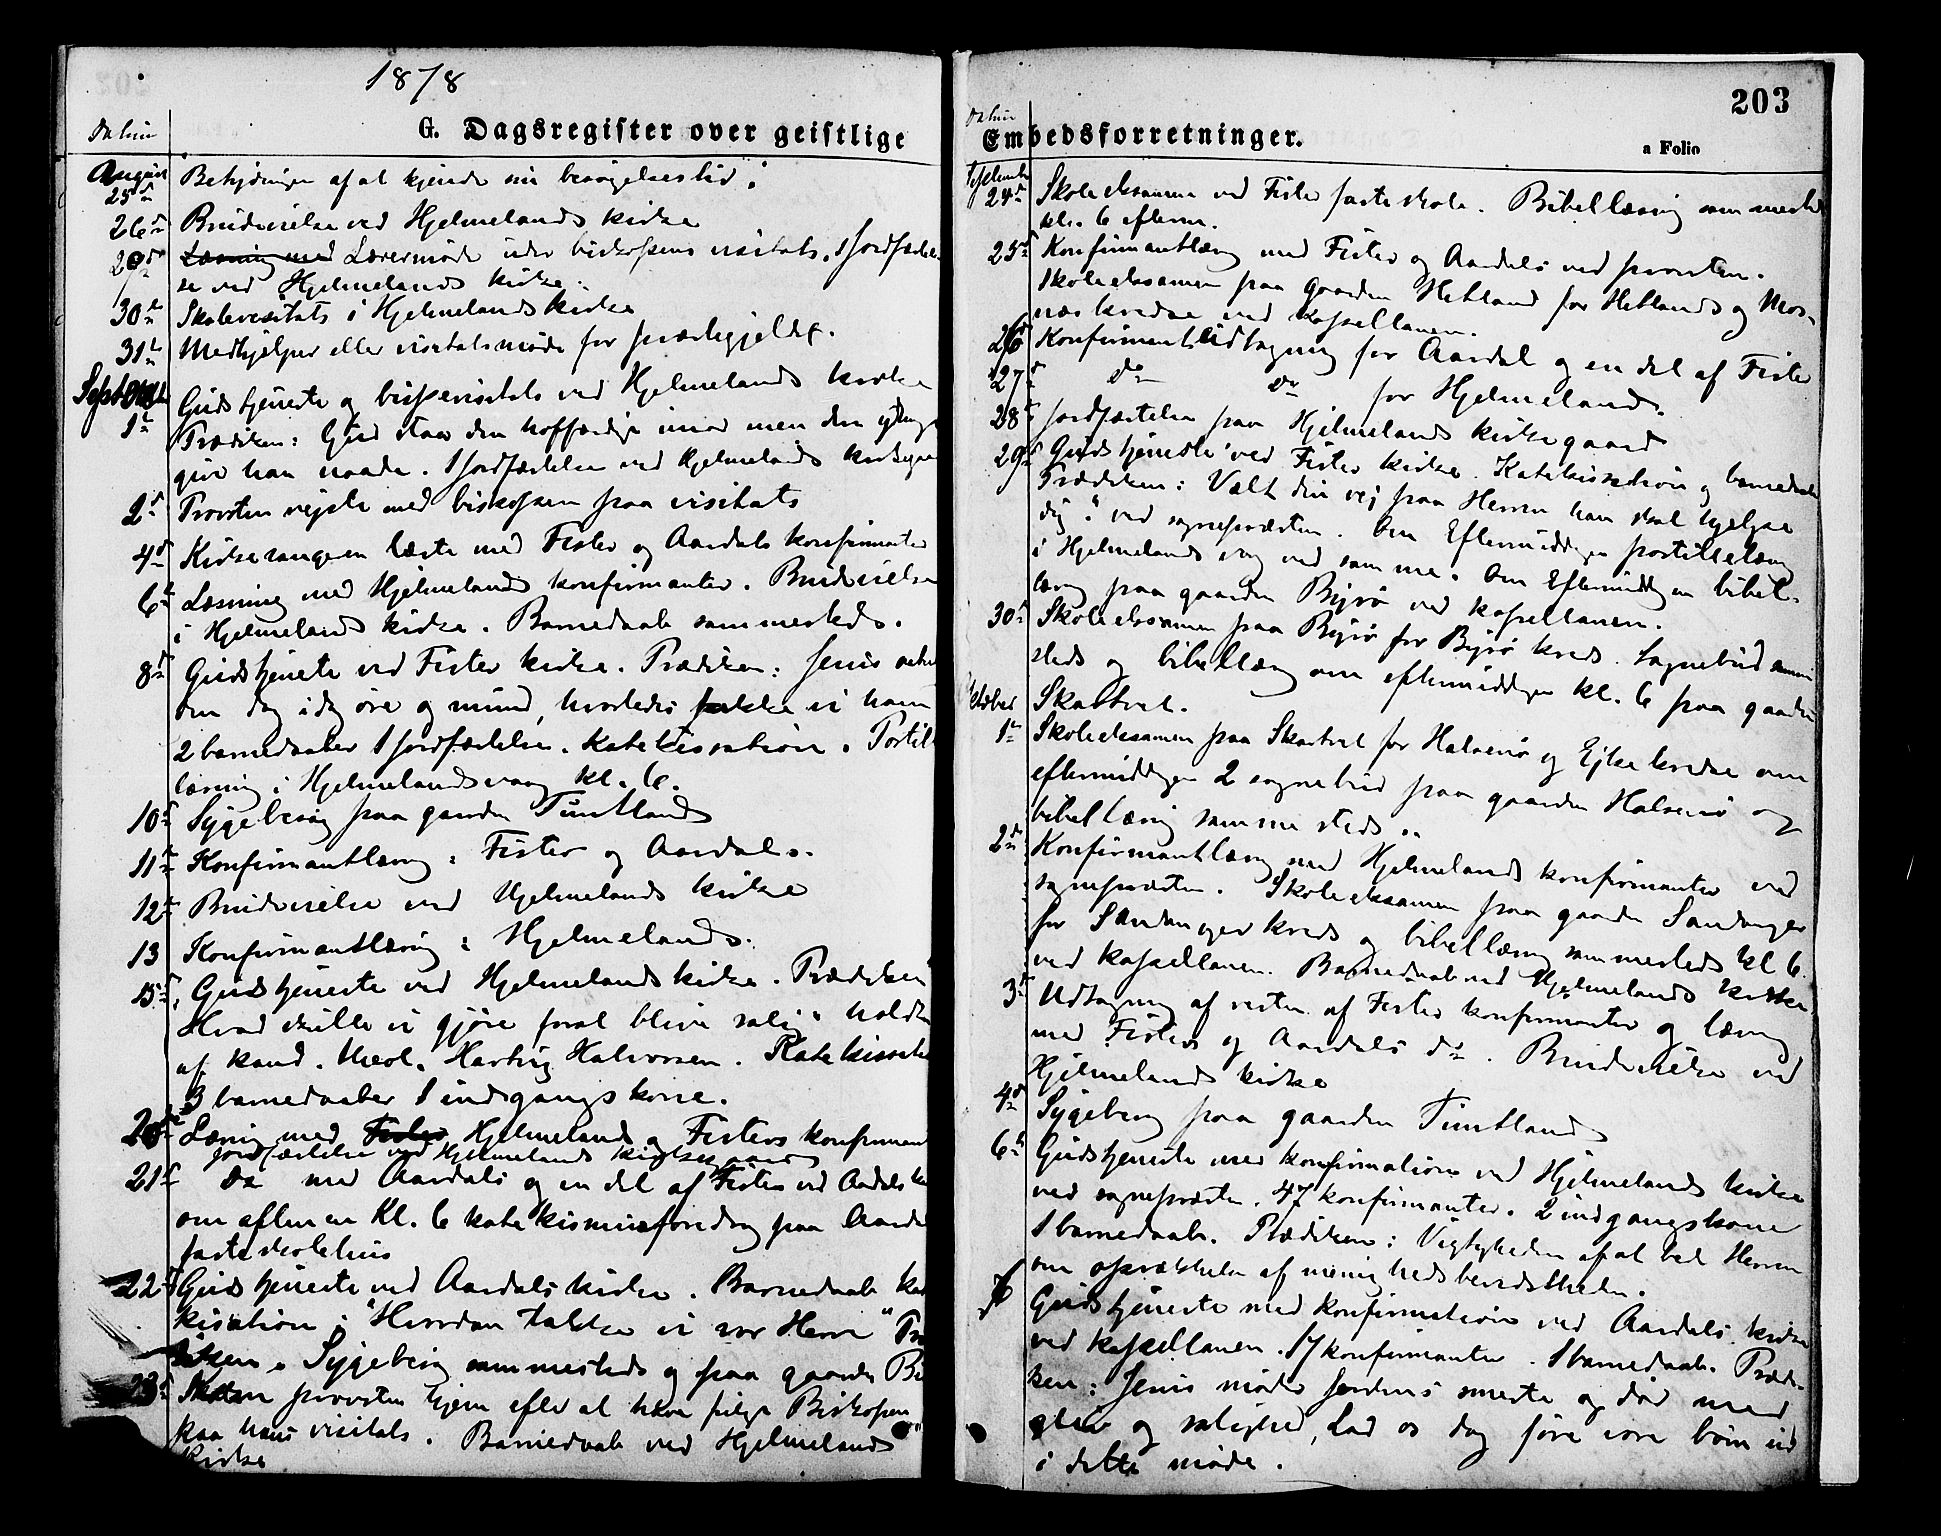 1878
Datum
G. Dagsregister over geistlige
August
25de Betydningen af at kjende sin besøgelsestid".
26de Brudevielse ved Hjelmelands kirke
Læsning med Lærermøde under biskopens visitats. 1 jordfæstel-
se ved Hjelmelands kirke.
30te Skolevisitats i Hjelmelands kirke
31te Medhjelper eller visitatsmøde for præstegjeldet.
Septemb
1te Gudstjeneste og bispevisitats ved Hjelmelands kirke
Prædiken: Gud staar den hoffærdige imod men den ydmyge
give han naade. 1 jordfæstelse ved Hjelmelands kirkegaa
2d Provsten rejste med biskopen paa visitats
4de Kirkesangeren læste med Fister og Aardals konfirmanter
6te Læsning med Hjelmelands konfirmanter. Brudevielse
i Hjelmelands kirke. Barnedaab sammesteds.
8de Gudstjeneste ved Fister kirke. Prædiken: Jesus
om dog i dag øre og mund, hvorledes takke vi ham
2 barnedaaber 1 jordfæstelse. Katekisation. Postil
læsning i Hjelmelandsvaag kl. 6.
10de Sygebesøg paa gaarden Tuntland
11te Konfirmantlæsng: Fister og Aardals.
12te Brudevielse ved Hjelmelands kirke
13 Konfirmantlæsng: Hjelmelands.
15de Gudstjeneste ved Hjelmelands kirke. Prædiken
Hvad skulle vi gjøre for at blive salig" holdt
af kand. theol. Hartvig Halvorsen. Katekisati
3 barnedaaber 1 indgangskone.
20de Læsnig med Fister Hjelmeland og Fisters konfirman
jordfæstelse ved Hjelmelands kirkegaard
21de Do med Aardals og en del af Fister ved Aardals ki
om aftenen Kl. 6 katekismusforedrag paa Aardal
faste skolehus
22de Gudstjeneste ved Aardals kirke. Barnedaab kate
kisation: "Hvordan takke vi vor Herre" Præ
diken. Sygebesøg sammesteds og paa gaarden
23de provsten hjem efter at have fulgt Biskopen
paa hans visitats. Barnedaab ved Hjelmelands
kirke
203
Datum
Embedsforretninger.
a Folio
Septemb
24de Skoleeksamen ved Fister faste skole. Bibellæsnig sammested
kl. 6 efterm.
25de Konfirmantlæsng med Fister og Aardals ved provsten.
Skoleeksamen paa gaarden Hetland for Hetlands og Mos-
næs kredse ved kapellanen.
26de Konfirmantudtagning for Aardal og en del af Fister
27de do do for Hjelmeland.
28de Jordfæstelse paa Hjelmelands kirkegaard
29de Gudstjeneste ved Fister kirke. Katekisation og barnedaab
Prædiken: Vælt din vej paa Herren han skal hjelpe
dig" ved sognepræsten. Om Eftermiddagen postillelæsng
i Hjelmelandsvag ved samme. Om Eftermiddagen bibel-
læsng paa gaarden Byrø ved kapellanen.
30te Skoleeksamen paa Byrø for Byrø kreds. Sognebud samme
steds og bibellæsng om eftermiddagen kl. 6 paa gaarden
Oktober Skartveit.
1te Skoleeksamen paa Skartveit for Halsnø og Eike kredse om
eftermiddagen 2 sognebud paa gaarden Halsnø og
bibellæsnig samme steds.
2de Konfirmantlæsng med Hjelmelands konfirmanter ved
sognepræsten. Skoleeksamen paa gaarden Sandanger
for Sandanger kreds og bibellæsng sammesteds kl 6.
ved kapellanen. Barnedaab ved Hjelmelands kirke
3de Udtagning af resten af Fister konfirmanter og læsng
med Fisters og Aardals do. Brudevielse ved
Hjelmelands kirke
4de Sygebesøg paa gaarden Tuntland
6te Gudstjeneste med konfirmation ved Hjelmelands kirke
ved sognepræsten. 47 konfirmanter. 2 indgangskoner
1 barnedaab. Prædiken: Vigtigheden af at bede Herren
om oprettelse af menighedsbevidstheden.
Gudstjeneste med konfirmation ved Aardals kirke
ved kapellanen. 17 konfirmanter. 1 barnedaab. Prædi-
ken: Jesus møder Jordens smerte og død med
glæde og salighed, Lad os dog føre vore børn ud
i dette møde.